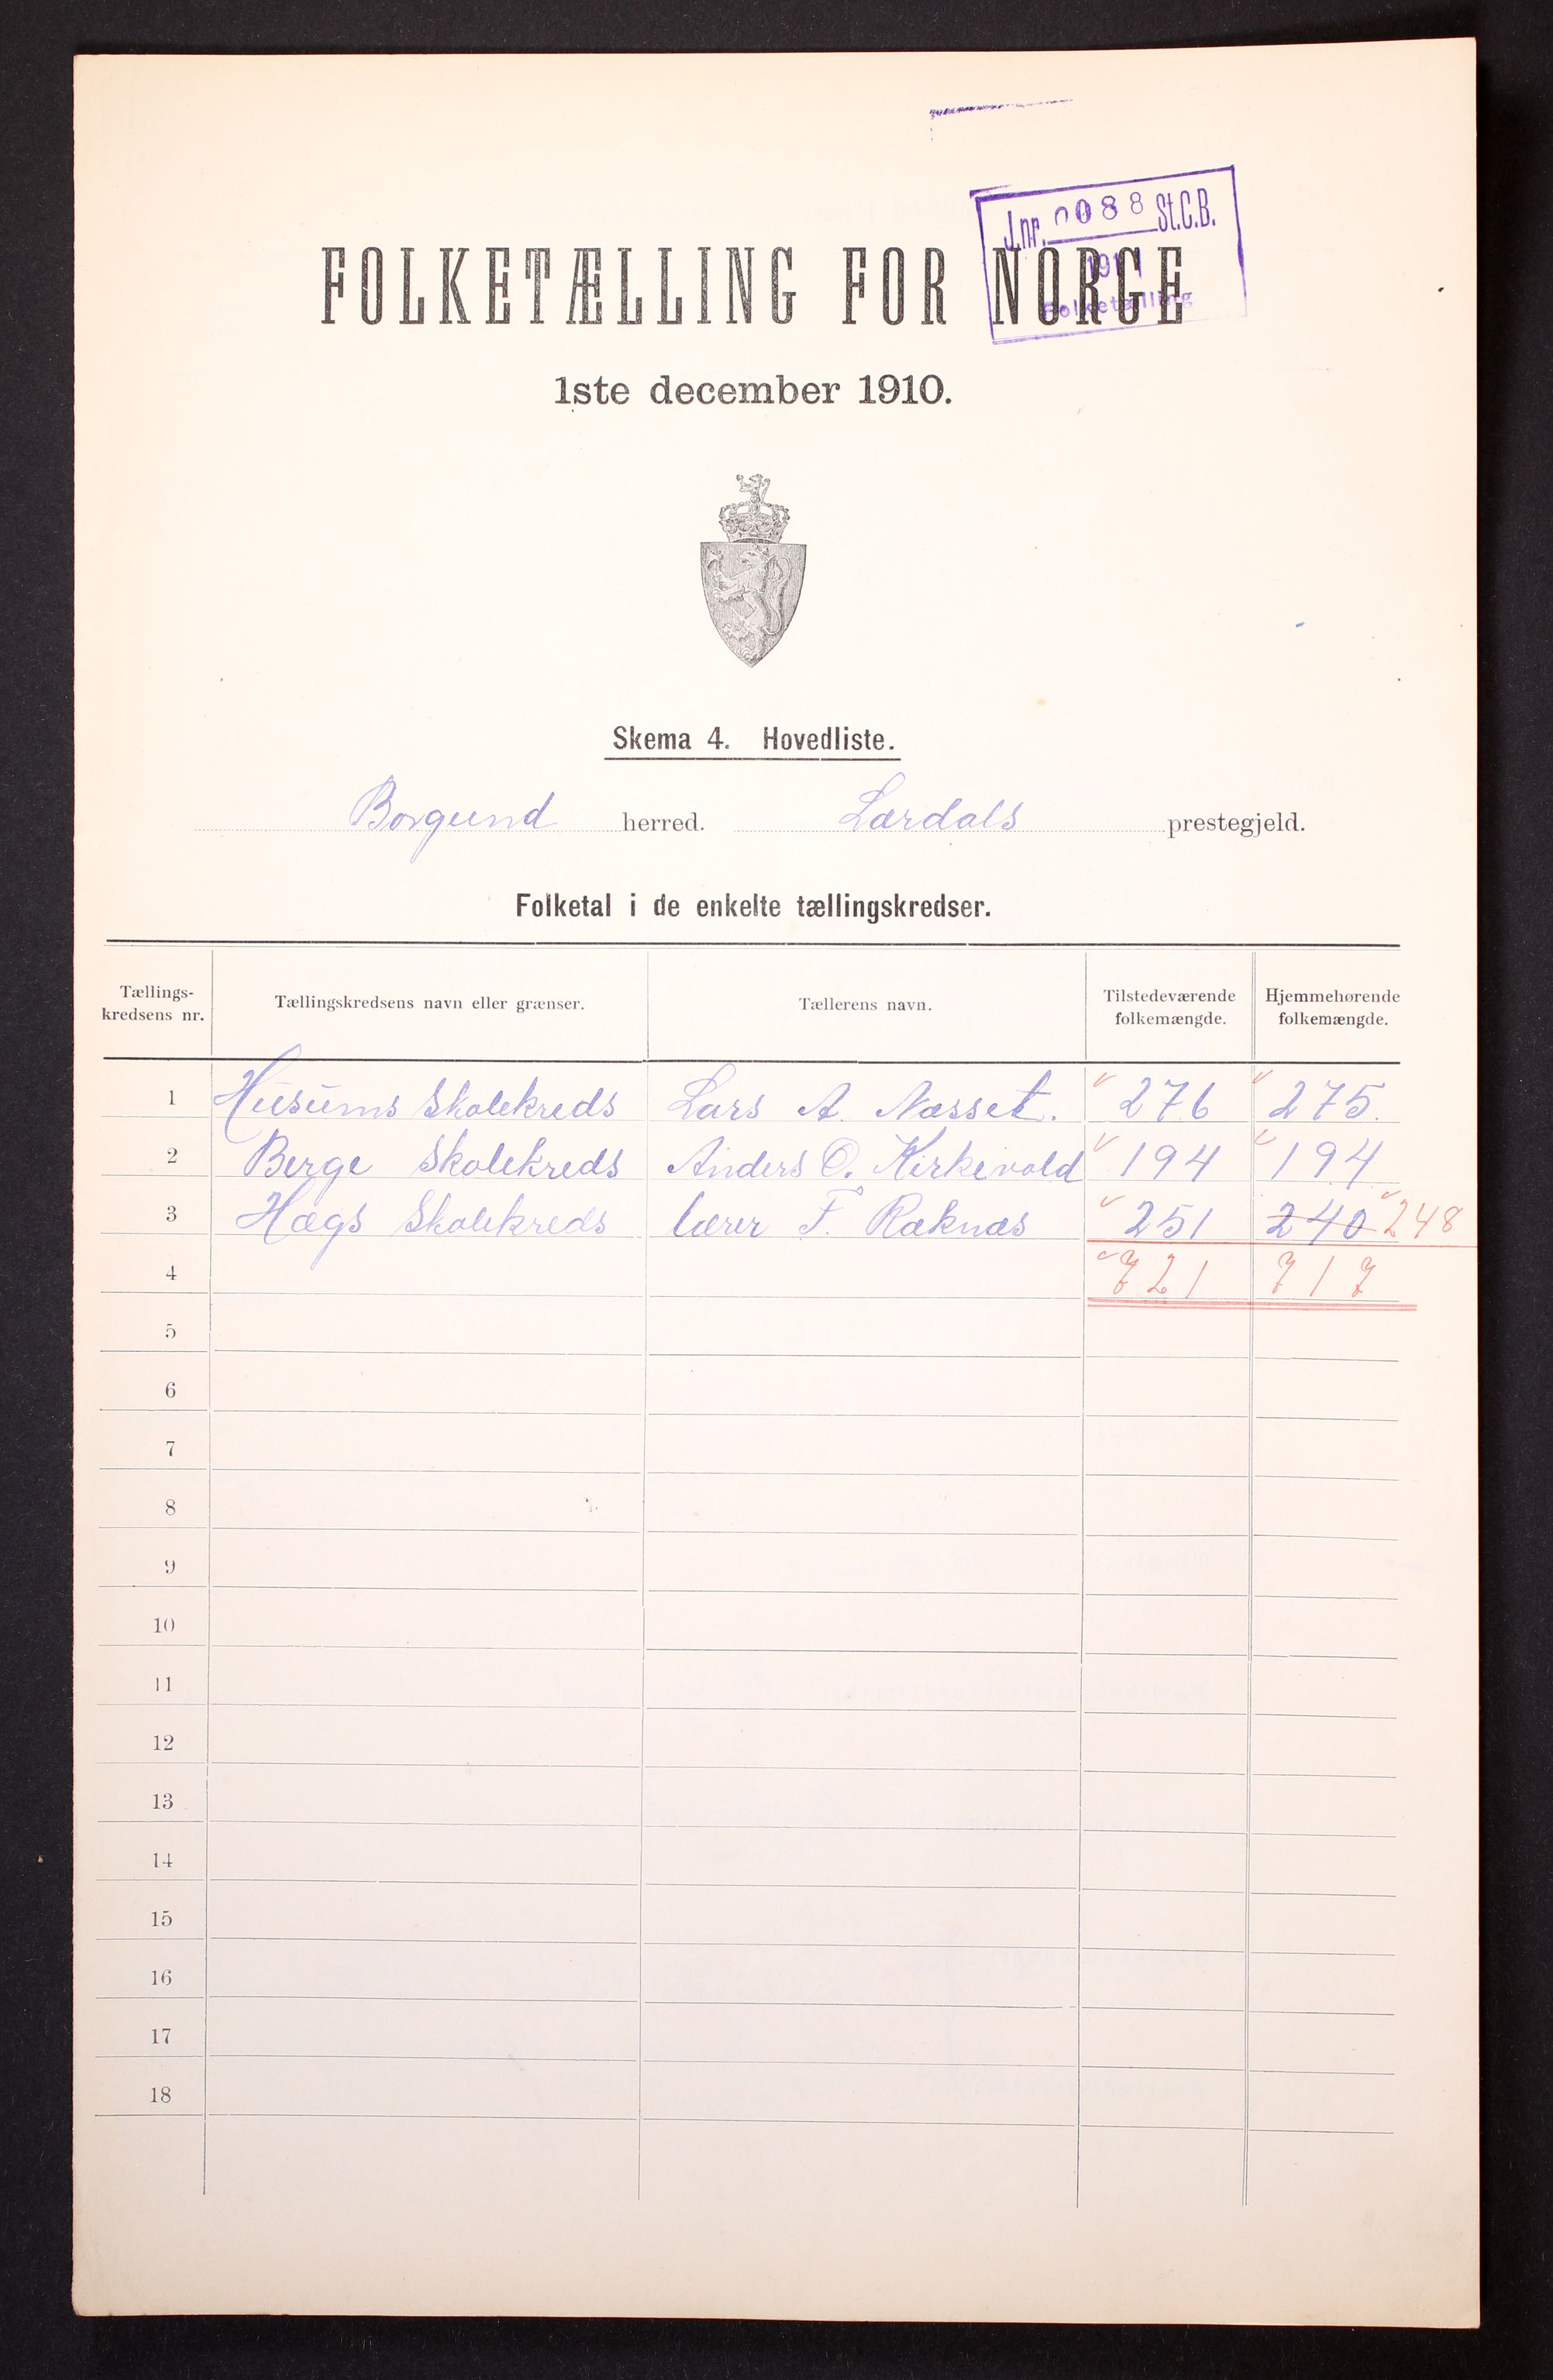 J.nr. 0088 St.C.B.
1911
Folketælling
FOLKETÆLLING FOR NORGE
1ste december 1910.
Skema 4. Hovedliste.
Borgund herred. Lærdals prestegjeld.
Folketal i de enkelte tællingskredser.
Tællings-kredsens nr. Tællingskredsens navn eller grænser. Tællerens navn. Tilstedeværende folkemængde. Hjemmehørende folkemængde.
1 Husums Skolekreds Lars A. Næsset. 276 275.
2 Berge Skolekreds Anders O. Kirkevold 194 194
3 Hægs Skolekreds lærer F. Raknæs 251 240 248
4 721 717
5
6
7
8
9
10
11
12
13
14
15
16
17
18